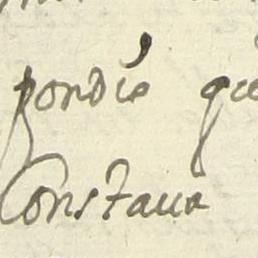 pondió que
Constava